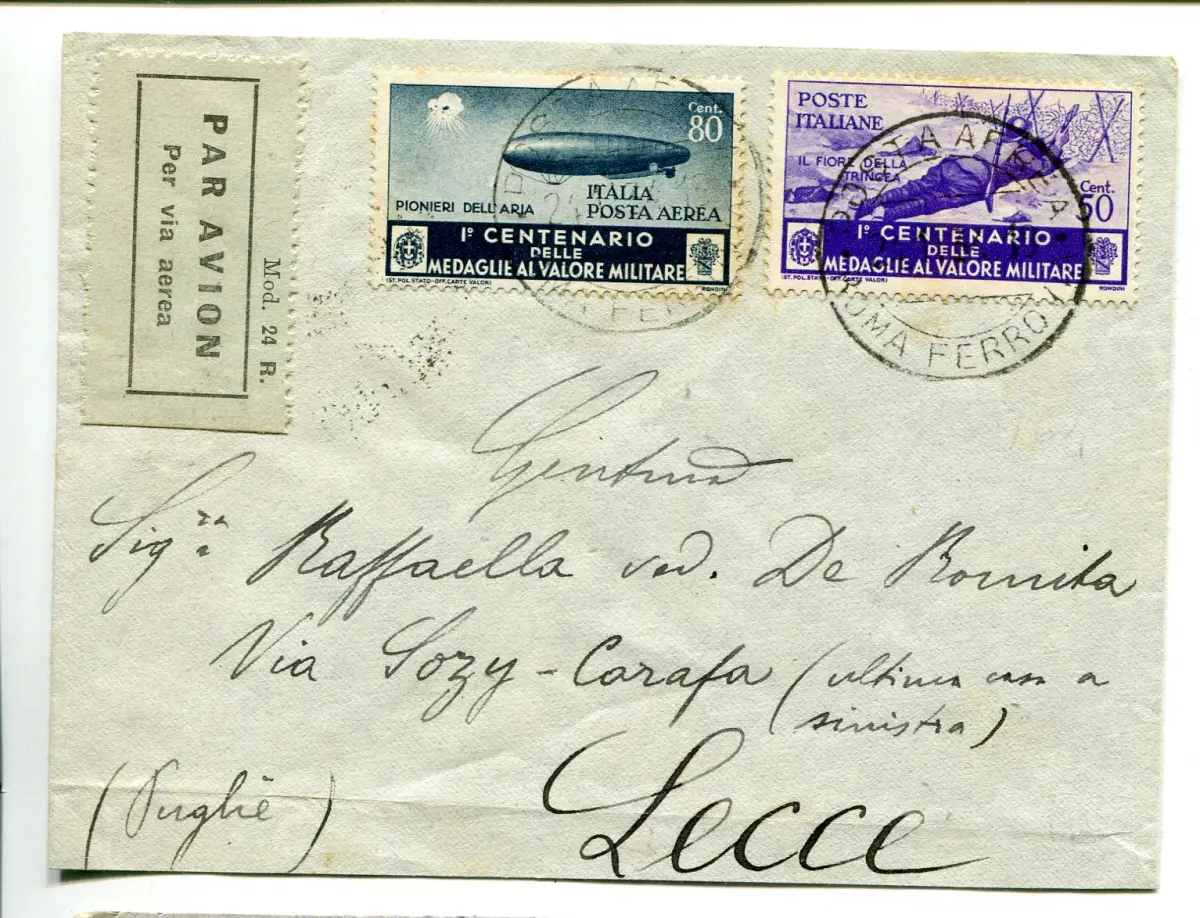 PAR AVION
Per via aerea
Mod. 24 R.
Cent.
80
PIONIERI DELL'ARIA
ITALIA
POSTA AEREA
I° CENTENARIO
DELLE
MEDAGLIE AL VALORE MILITARE
IST. POL. STATO - OFF. CARTE VALORI
RONDINI
POSTE
ITALIANE
IL FIORE DELLA
TRINCEA
Cent.
50
I° CENTENARIO
DELLE
MEDAGLIE AL VALORE MILITARE
IST. POL. STATO - OFF. CARTE VALORI
RONDINI
POSTA AEREA
ROMA FERROVIA
Gentma
Sigra Raffaella ved. De Romita
Via Sozy-Carafa (ultima casa a
sinistra)
(Puglie)
Lecce